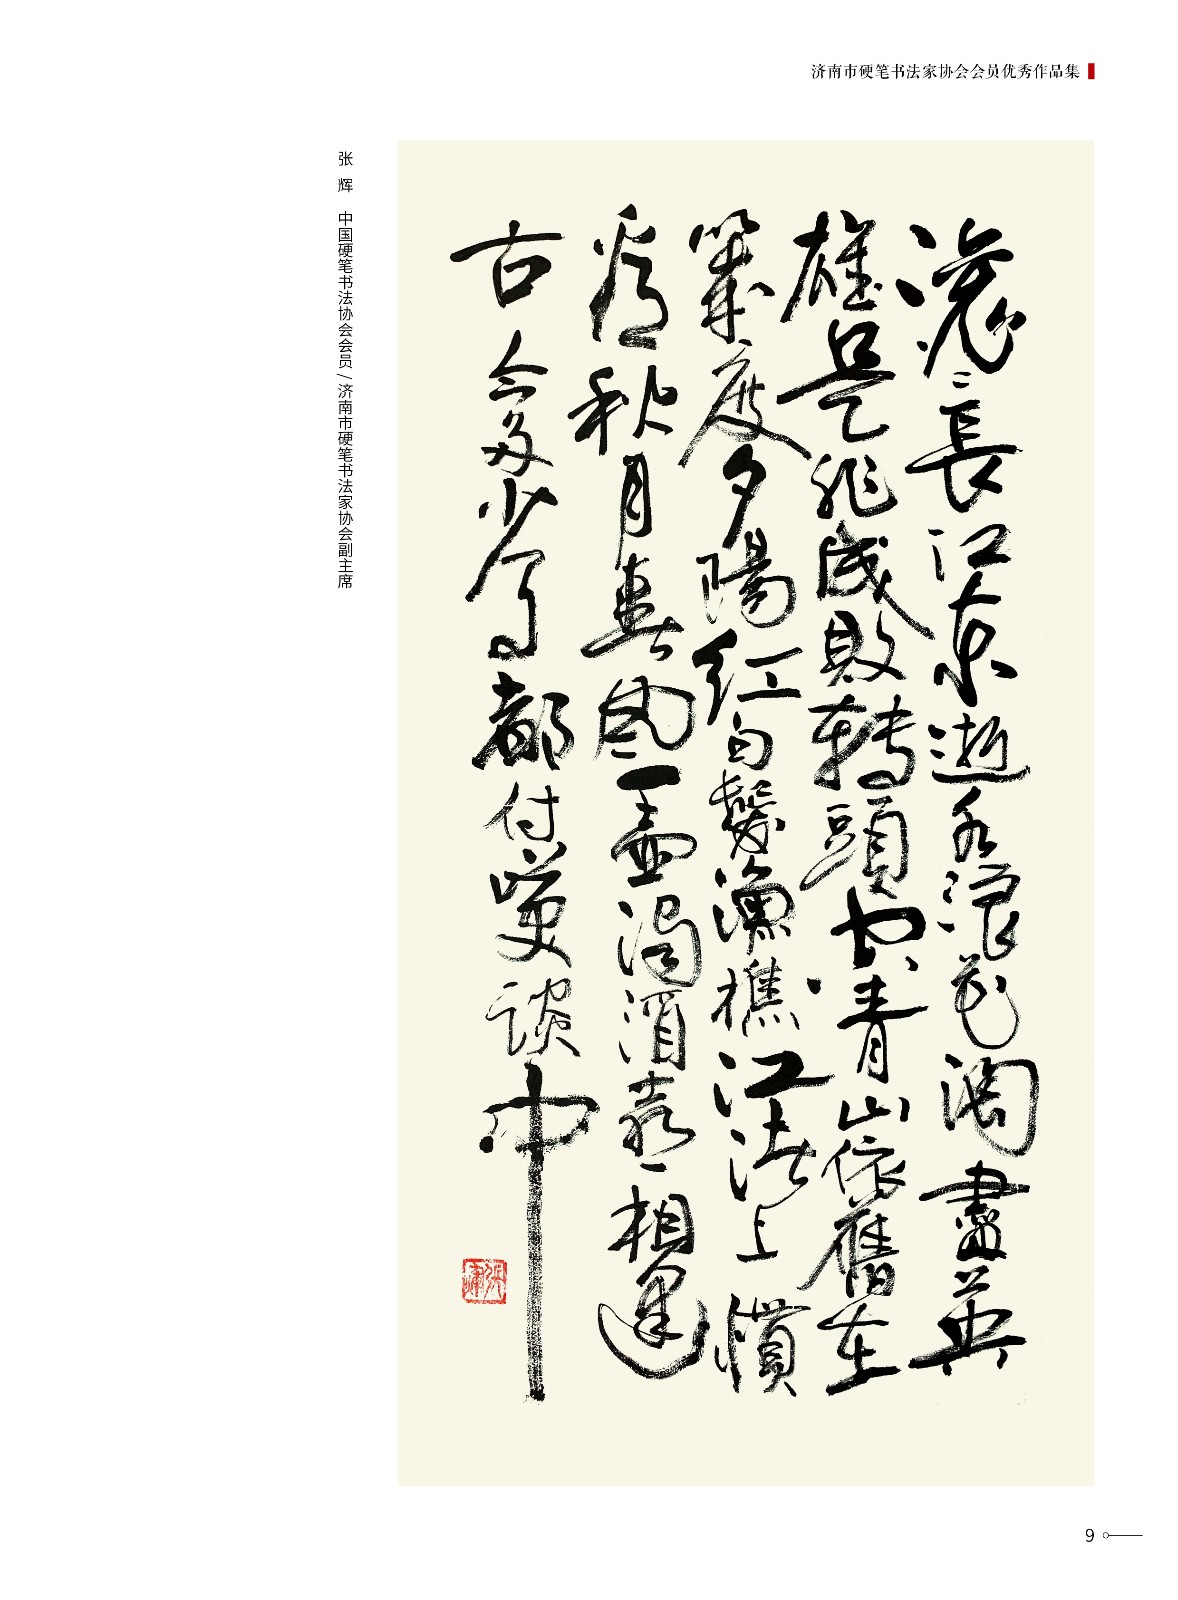 济南市硬笔书法家协会会员优秀作品集
张 辉 中国硬笔书法协会会员/济南市硬笔书法家协会副主席
滚〻長江东逝水浪花淘盡英
雄是非成敗轉頭空青山依舊在
幾度夕陽红白髮漁樵江渚上慣
看秋月春风一壶濁酒喜相逢
古今多少事都付笑談中
9